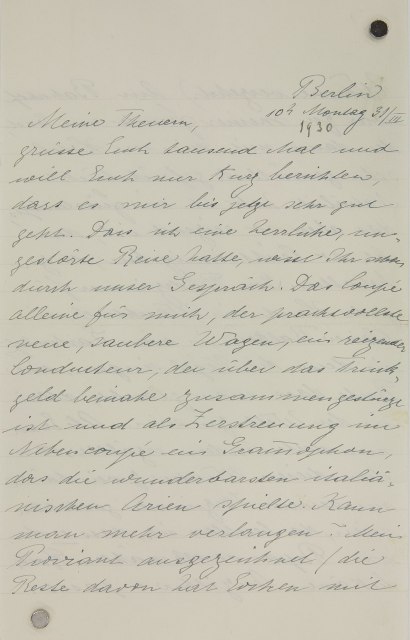 Berlin
10h Montag 31/III
1930
Meine Theuern,
grüsse Euch tausend Mal und
will Euch nur kurz berichten,
dass es mir bis jetzt sehr gut
geht. Dass ich eine herrliche, un-
gestörte Reise hatte, wisst Ihr schon
durch unser Gespräch. Das Coupé
alleine für mich, der prachtvollste
neue, saubere Wagen, ein reizender
Conducteur, der über das Trink-
geld beinahe zusammengestürzt
ist und als Zerstreuung im
Nebencoupé ein Gramophon,
das die wunderbarsten italiä-
nischen Arien spielte. Kann
man mehr verlangen? Mein
Proviant ausgezeichnet (die
Reste davon hat mit